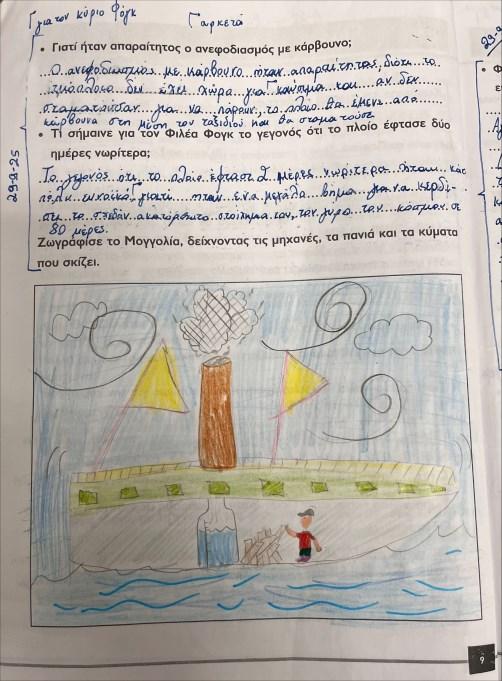 για τον κύριο Φόγκ
• Γιατί ήταν απαραίτητος ο ανεφοδιασμός με κάρβουνο;
Ο ανεφοδιασμός με κάρβουνο ήταν απαραίτητος, διότι το
δεν έχει χώρα για καύσιμα και αν δεν
σταματούσαν για να πάρουν, το πλοίο θα έμενε από
κάρβουνα στη μέση του ταξιδιού και θα σταματούσε
• Τι σήμαινε για τον Φιλέα Φογκ το γεγονός ότι το πλοίο έφτασε δύο
ημέρες νωρίτερα;
29-9-25
Το γεγονός ότι το πλοίο έφτασε 2 μέρες νωρίτερα ήταν κάτι
γιατί ήταν ένα μεγάλο βήμα για να κερδί-
σει το σχεδόν ακατόρθωτο στοίχημα του, τον γύρο του κόσμου σε
80 μέρες.
Ζωγράφισε το Μογγολία, δείχνοντας τις μηχανές, τα πανιά και τα κύματα
που σκίζει.
9